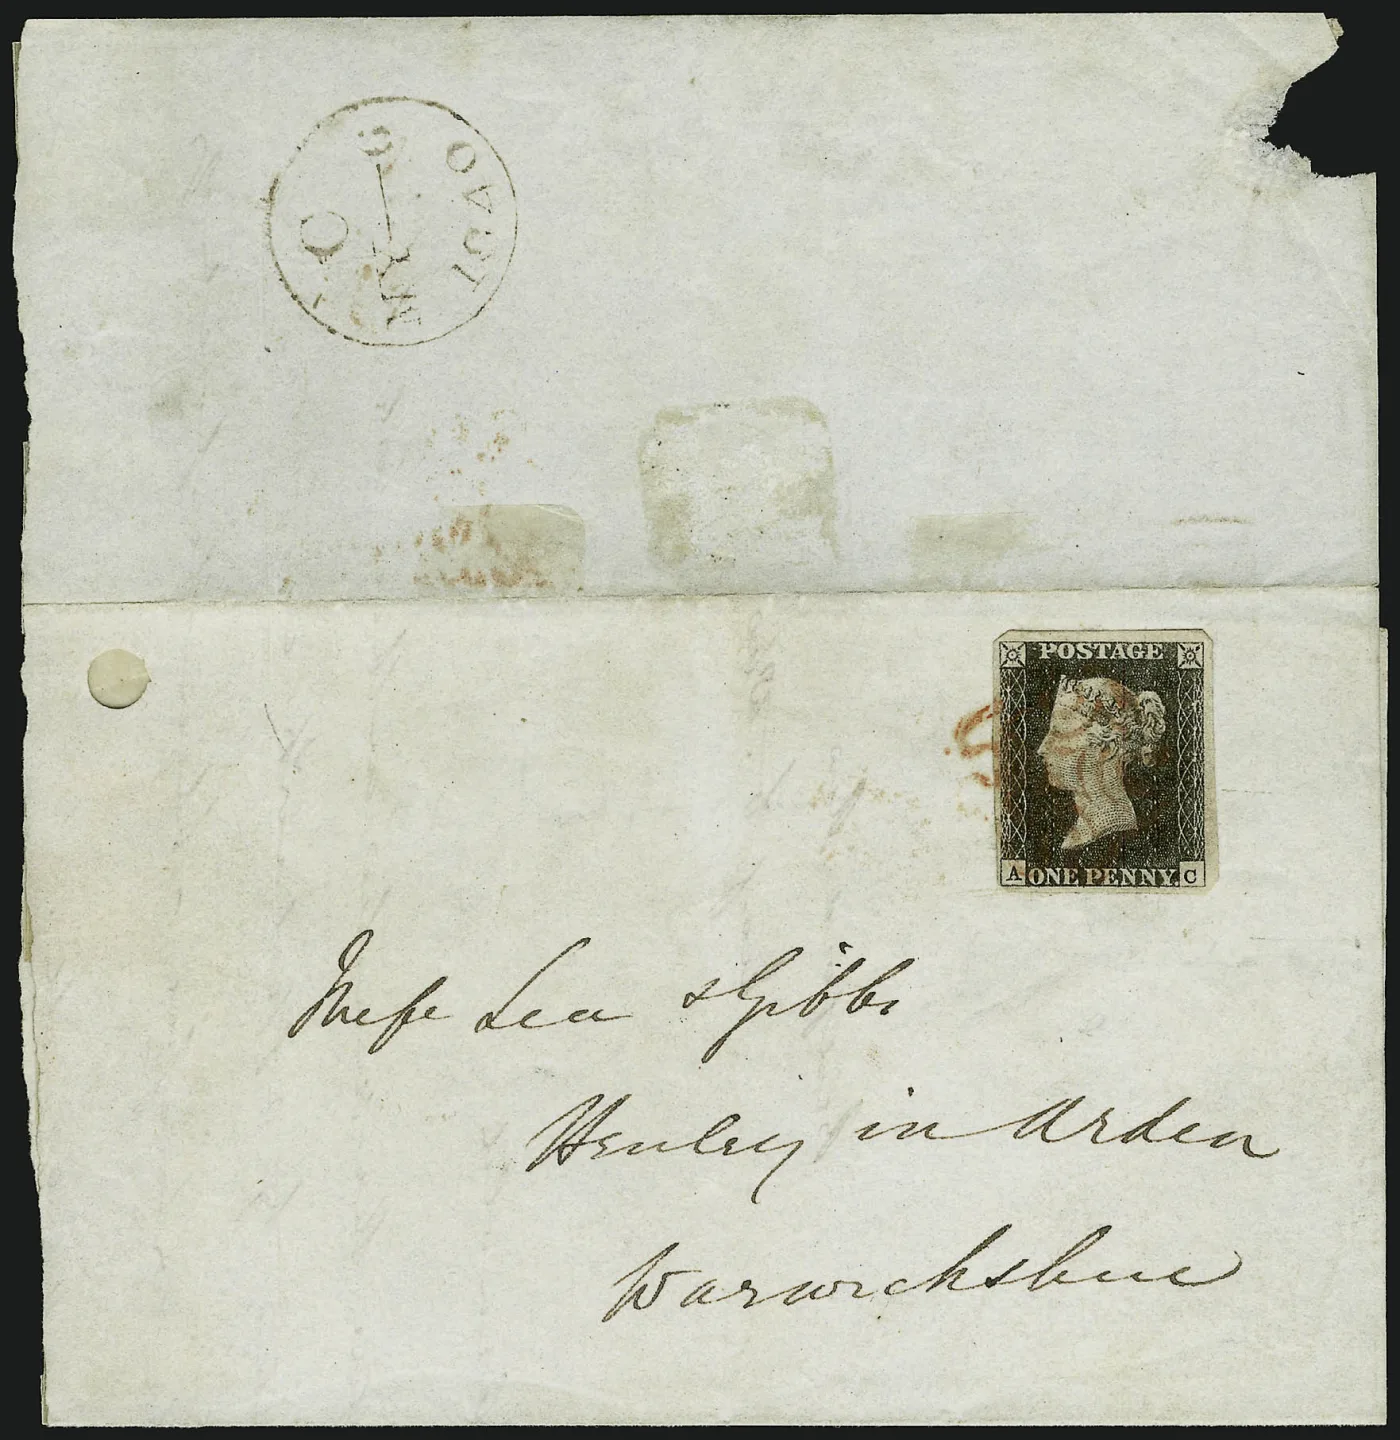 1840
MY
C
POSTAGE
A ONE PENNY C
Messe Lea & Gibbs
Henley in Arden
Warwickshire